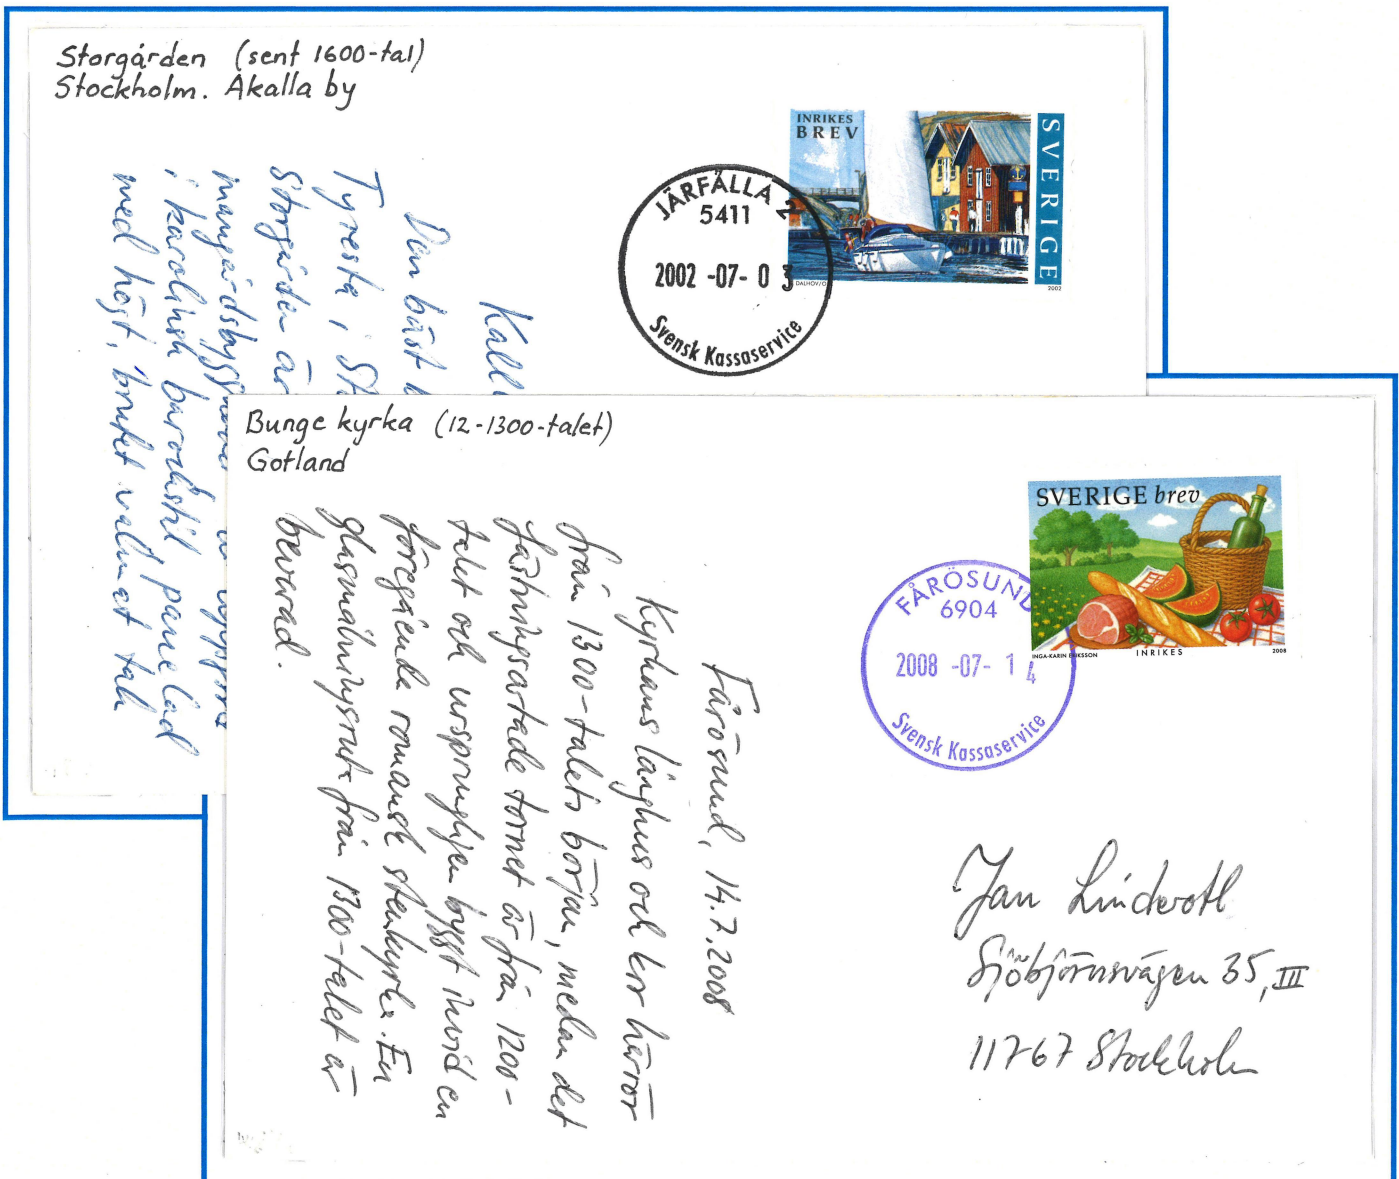 Storgården (sent 1600-tal)
Stockholm. Akalla by
INRIKES
BREV
SVERIGE
DALHOV/O
2002
JÄRFÄLLA 2
5411
2002 -07- 0 3
Svensk Kassaservice
Kall
Den bäst
Tyresta i St
Storgården är
mangårdsbygg
i karolinsk barockstil, panelad
med högt, brutet valmat tak
Bunge kyrka (12-1300-talet)
Gotland
SVERIGE brev
INGA-KARIN ERIKSSON
INRIKES
2008
FÅRÖSUND
6904
2008 -07- 1 4
Svensk Kassaservice
Fårösund, 14.7.2008
Kyrkans långhus och kor härrör
från 1300-talets början, medan det
fästningsartade tornet är från 1200-
talet och ursprungligen byggt invid en
föregående romansk stenkyrka. En
glasmålningsruta från 1300-talet är
bevarad.
Jan
Sjöbjörnsvägen 35, III
11767 Stockholm